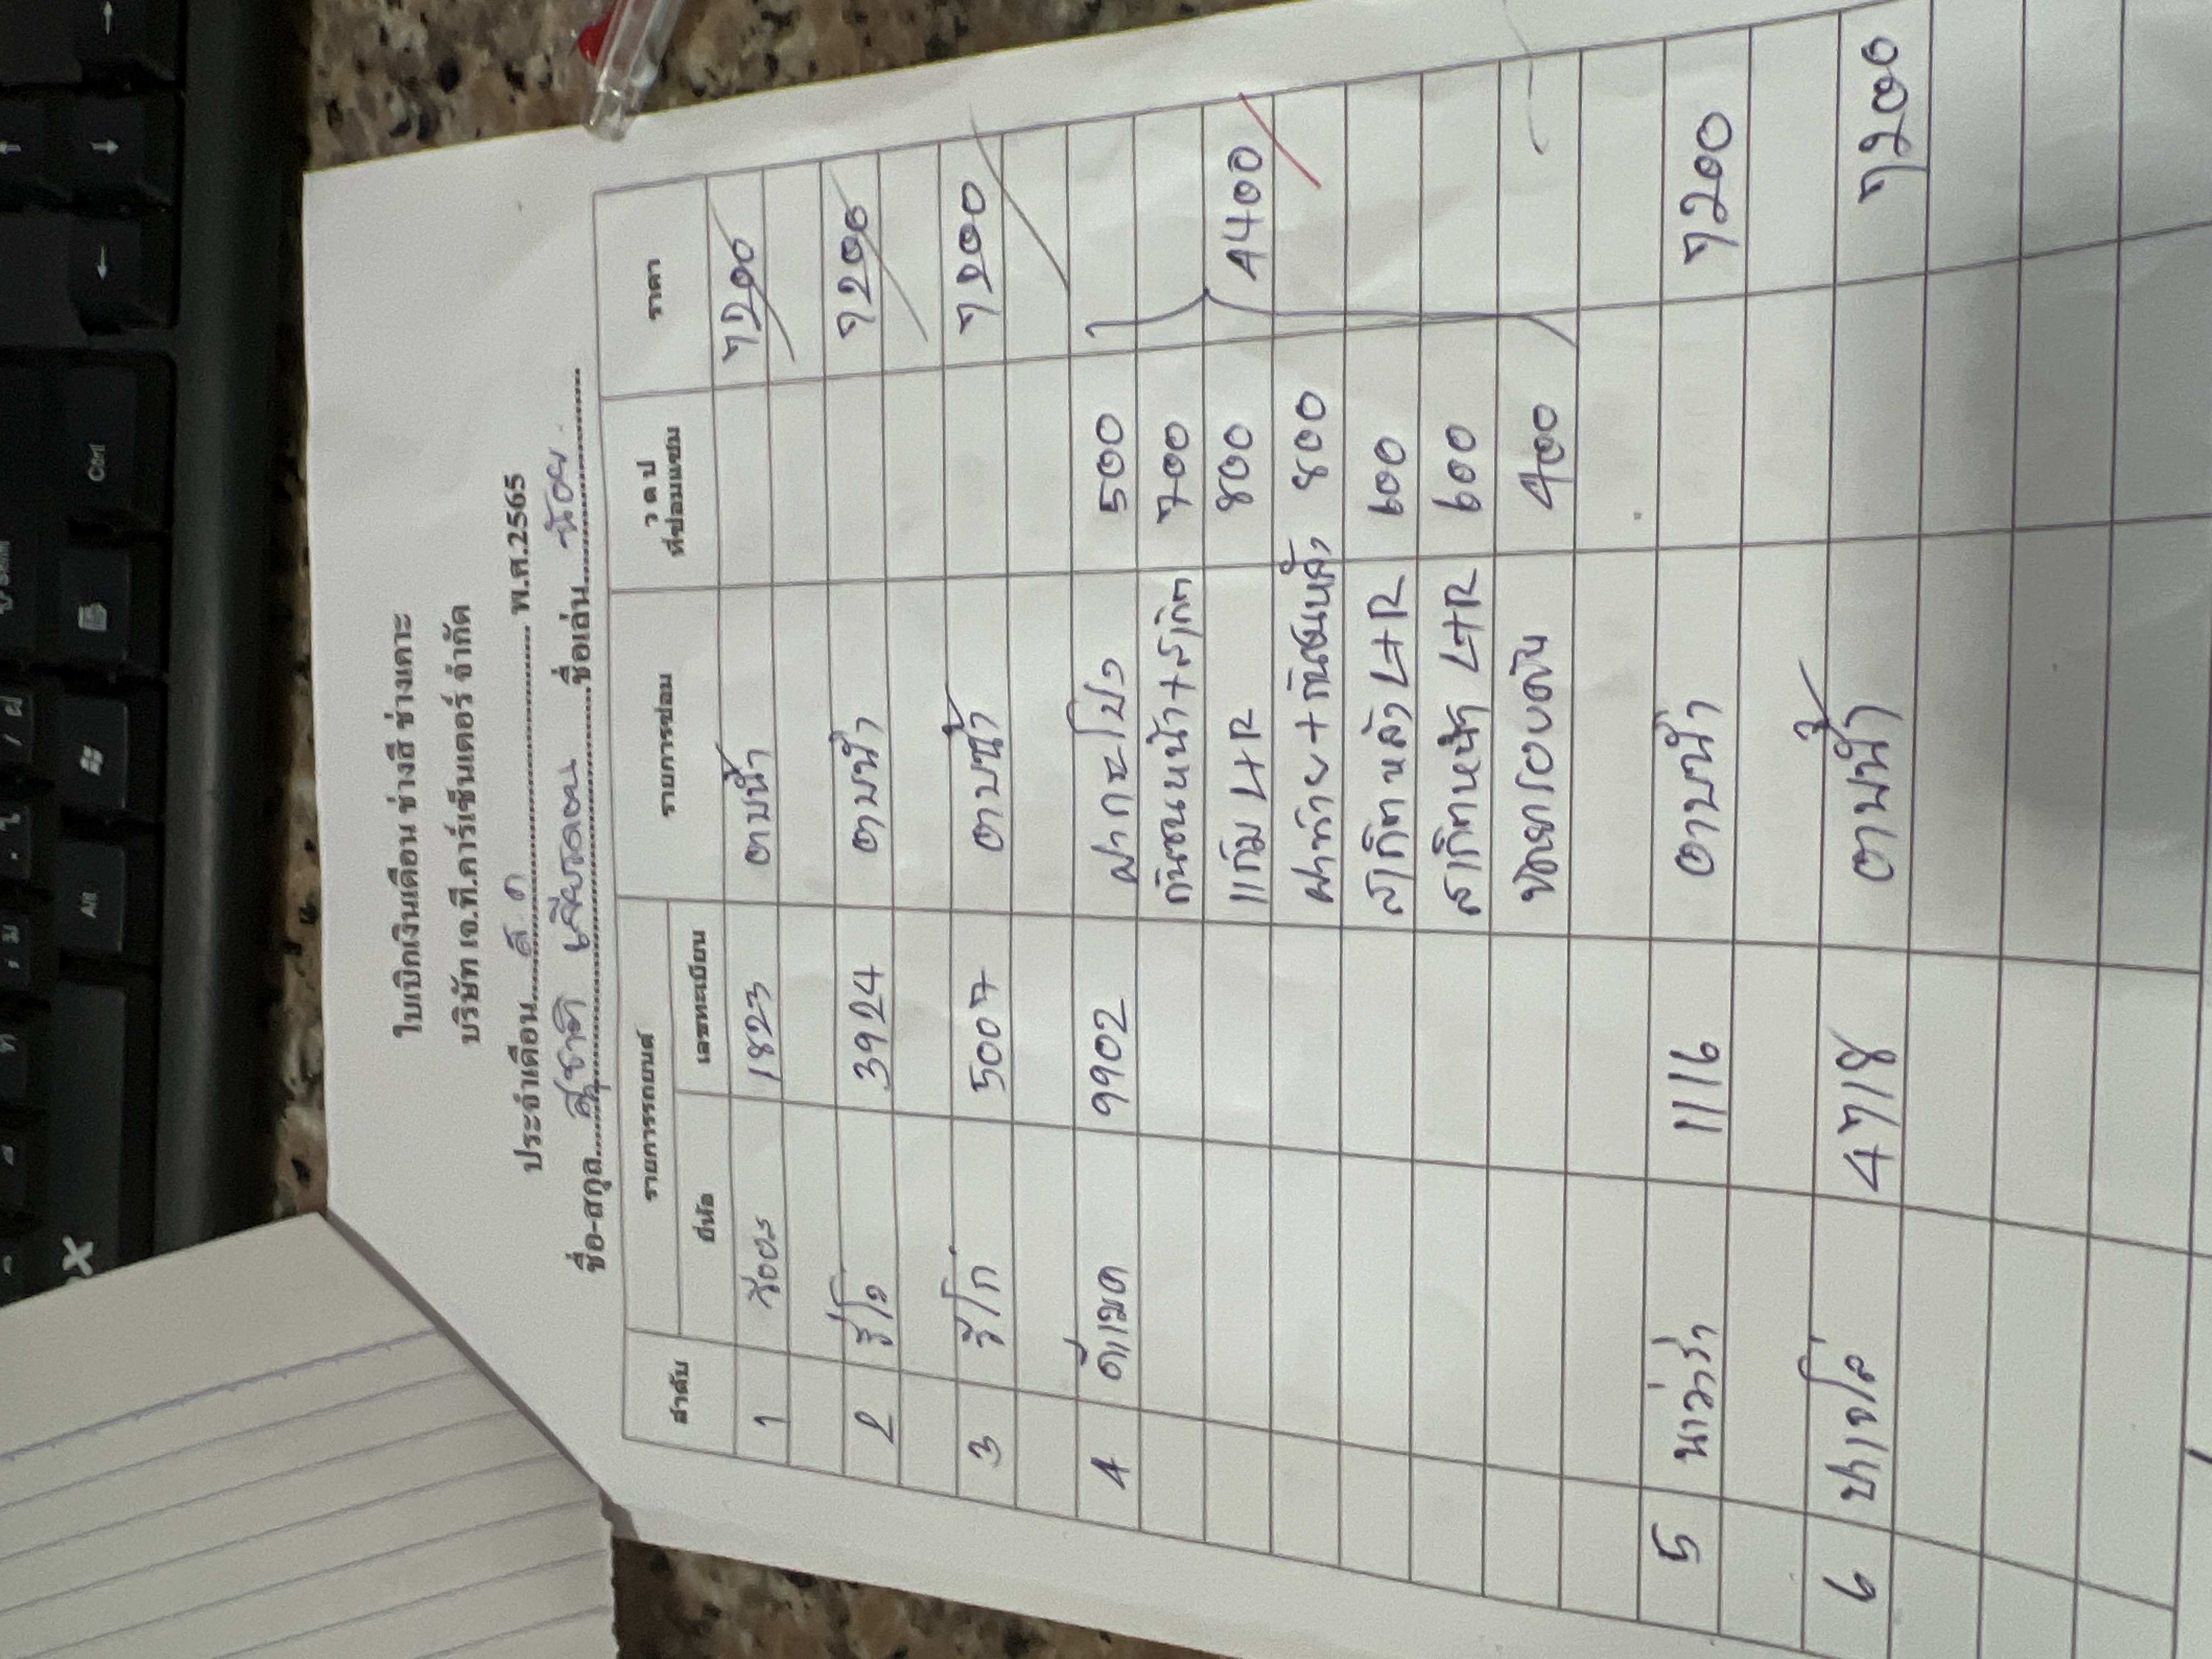 ใบเบิกเงินเดือน ช่างสี ช่างเคาะ
บริษัท เจ.ที.คาร์เซ็นเตอร์ จำกัด
ประจำเดือน....ส.ค............ พ.ศ.2565
ชื่อ-สกุล....สุชาติ ............ชื่อเล่น....น้อย....
ลำดับ รายการรถยนต์ รายการซ่อม ว ด ป ที่ซ่อมแซม ราคา
ยี่ห้อ เลขทะเบียน
1 วีออส 1823 ตาบน้ำ 7200
2 รีโว่ 3924 ตาบน้ำ 7200
3 วีโก้ 5007 ตาบน้ำ 7200
4 ดีแมค 9902 ฝากระโปรง 500
กันชนหน้า+สเกิต 700
แก้ม L+R 800 4400
ฝาท้าย+กันชนหลัง 800
สเกิตหลัง L+R 600
สเกิตหน้า L+R 600
400
5 นาวาร่า 1116 ตาบน้ำ 7200
6 ปาเจโร่ 4718 ตาบน้ำ 7200
Alt
Ctrl